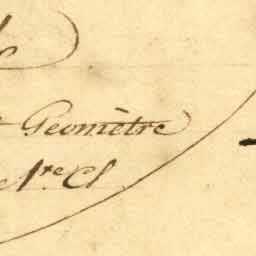 Geomètre
1re Cl